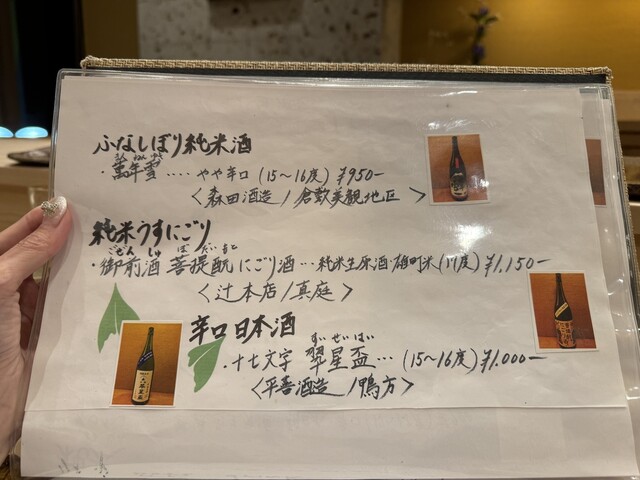 ふなしぼり純米酒
まんねんゆき
・萬年雪‥‥やや辛口(15〜16度)¥950-
〈森田酒造/倉敷美観地区〉
純米うすにごり
ごぜんしゅ ぼだいもと
・御前酒 菩提酛にごり酒…純米生原酒・雄町米(17度)¥1,150-
〈辻本店/真庭〉
辛口日本酒
すいせいはい
・十七文字 翠星盃…(15〜16度)¥1.000-
〈平喜酒造/鴨方〉